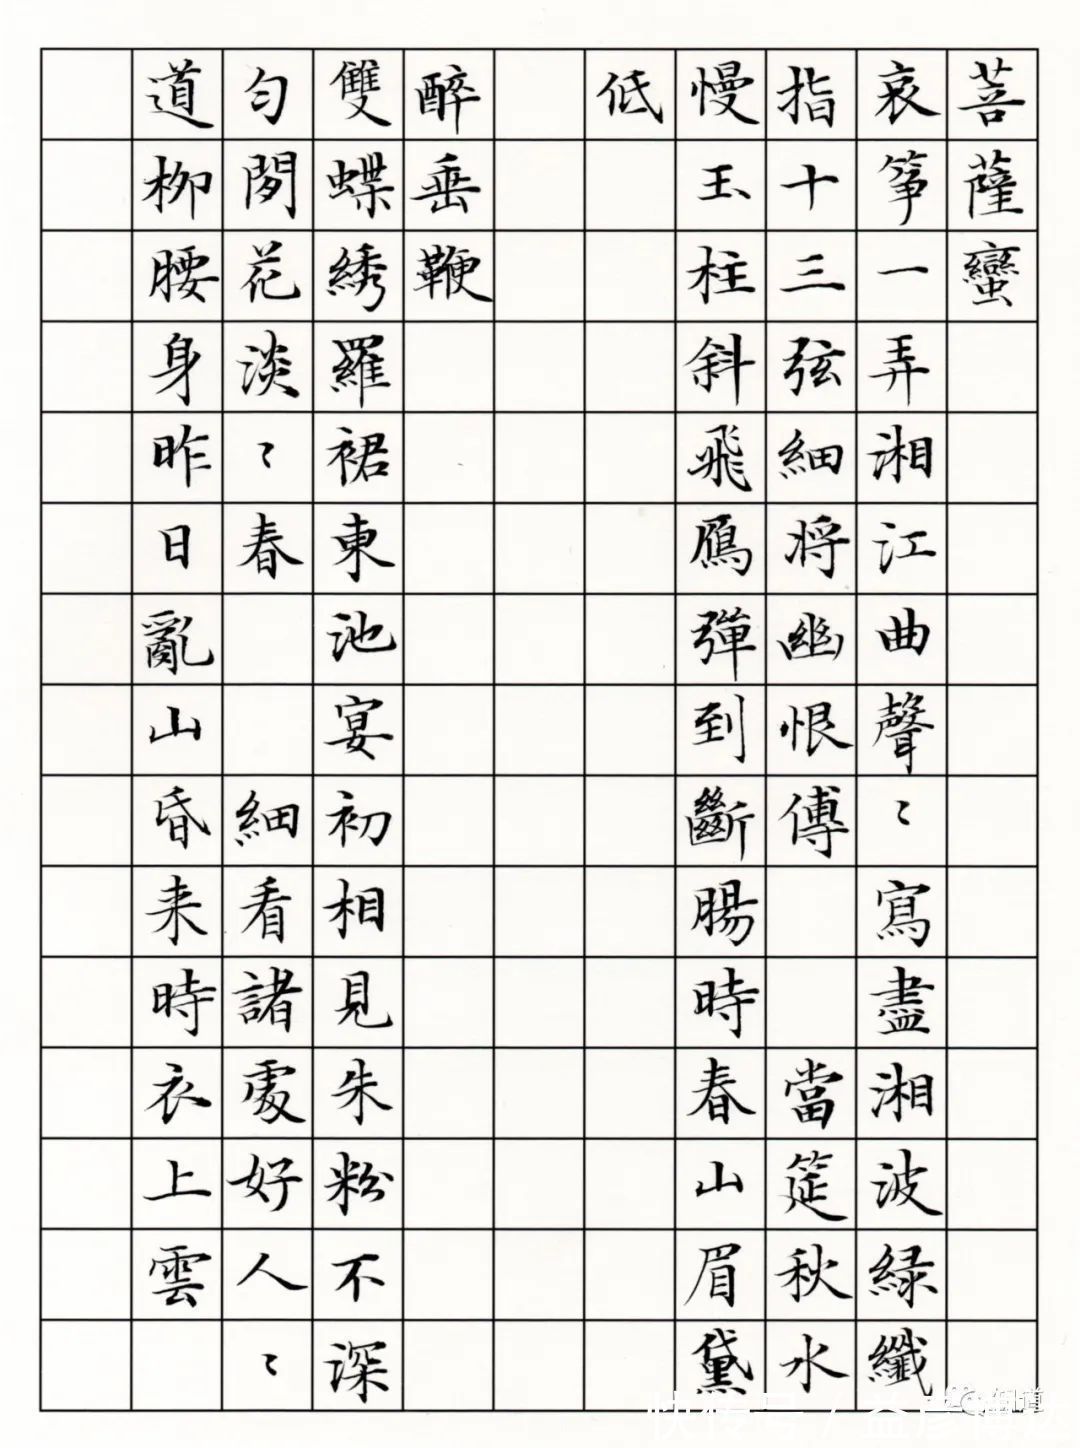 菩薩蠻
哀筝一弄湘江曲聲〻寫盡湘波緑纖
指十三弦細将幽恨傳 當筵秋水
慢玉柱斜飛鴈彈到斷腸時春山眉黛
低
醉垂鞭
雙蝶綉羅裙東池宴初相見朱粉不深
匀閒花淡〻春 細看諸處好人〻
道柳腰身昨日亂山昏来時衣上雲